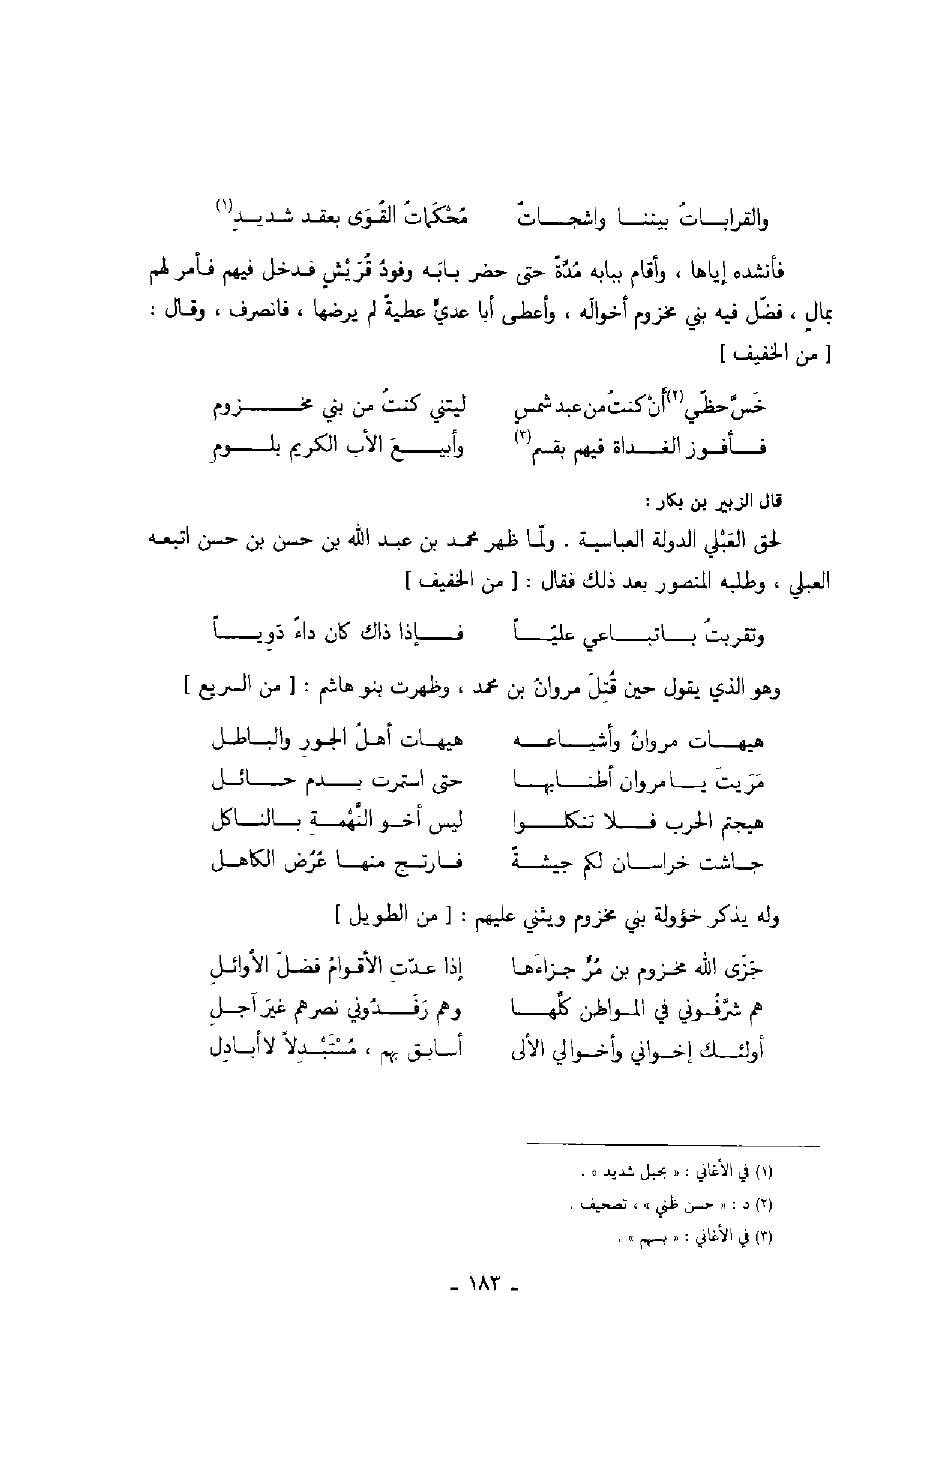 والقرابـاتُ بيننـا واشجـاتٌ مُحْكَمَاتُ القُوَى بعقد شديـدِ(١)
فأنشده إياها ، وأقام ببابه مُدّةً حتى حضر بابَه وفودُ قُرَيْشٍ فدخل فيهم فأمر لهم
بمالٍ ، فضّل فيه بني مخزوم أخوالَه ، وأعطى أبا عديٍّ عطيةً لم يرضها ، فانصرف ، وقال :
[ من الخفيف ]
خَسَّ حظّي(٢) أنْ كنتُ من عبد شمسٍ ليتني كنتُ من بني مخـزوم
فـأفوز الغـداة فيهم بقسم(٣) وأبيـعَ الأب الكريم بلـوم
قال الزبير بن بكار :
لحق العَبْلي الدولة العباسية . ولمّا ظهر محمد بن عبد الله بن حسن بن حسن اتبعه
العبلي ، وطلبه المنصور بعد ذلك فقال : [ من الخفيف ]
وتقربتُ بـاتبـاعي عليّـاً فـإذا ذاك كان داءً دَوِيـاً
وهو الذي يقول حين قُتِلَ مروانُ بن محمد ، وظهرت بنو هاشم : [ من السريع ]
هيهـات مروانُ وأشيـاعـه هيهات أهلُ الجور والباطل
مَرَيتَ يـامروان أطنـابها حتى استمرت بـدم حـائل
هيجتم الحرب فـلا تنكلـوا ليس أخو النُّهْمـةِ بـالناكل
جـاشت خراسـان لكم جيشـةً فـارتـج منهـا عُرُض الكاهل
وله يذكر خؤولة بني مخزوم ويثني عليهم : [ من الطويل ]
جَزَى الله مخزوم بن مُرٍّ جزاءَها إذا عدّتِ الأقوامُ فضلَ الأوائلِ
هم شرَّفُوني في المواطن كلّهـا وهم رَفَـدُوني نصرهم غيرَ آجلِ
أولئـك إخواني وأخوالي الألى أسابق بهم ، مُسْتَبْدِلاً لا أُبادِل
(١) في الأغاني : « بحبل شديد » .
(٢) د : « حسن ظني » ، تصحيف .
(٣) في الأغاني : « بسهم » .
ـ ١٨٣ ـ